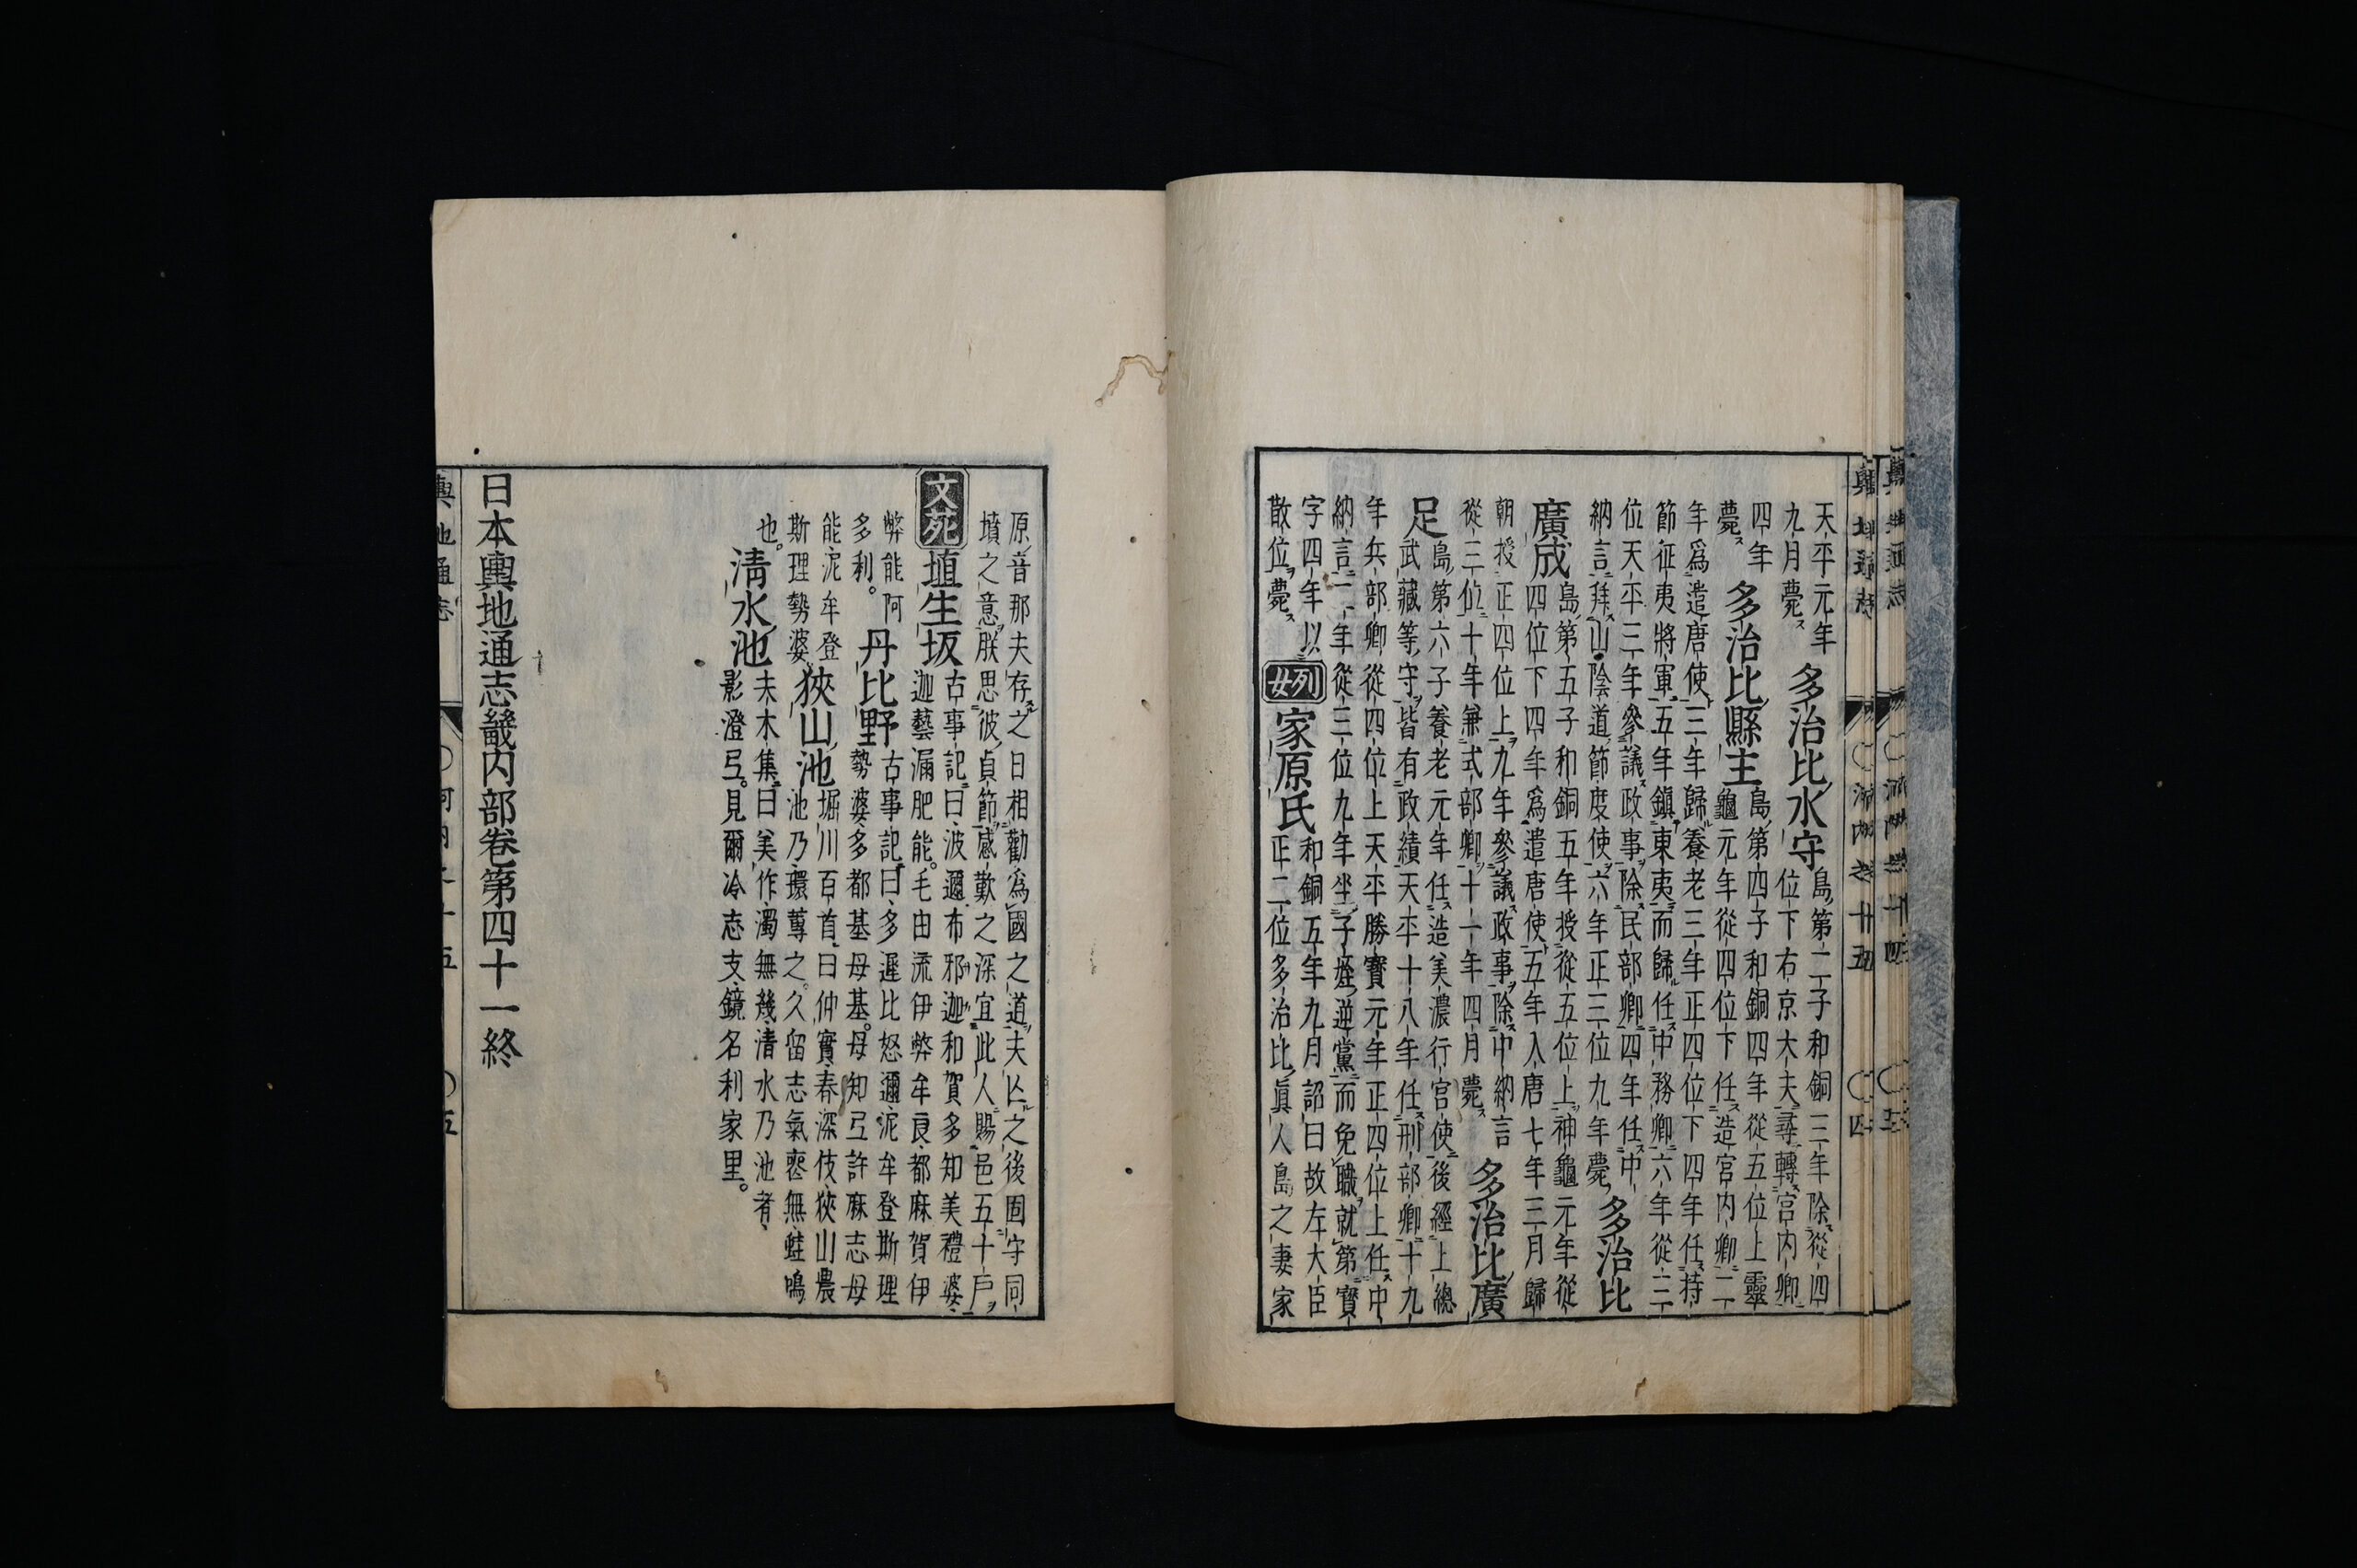 天平元年
九月薨
多治比水守
島第二子和銅三年除從四
位下右京大夫尋轉宮内卿
四年
薨
多治比縣主
島第四子和銅四年從五位上靈
龜元年從四位下任造宮内卿二
年爲遣唐使三年歸養老三年正四位下四年任持
節征夷將軍五年鎮東夷而歸任中務卿六年從三
位天平三年參議政事除民部卿四年任中
納言拜山陰道節度使六年正三位九年薨
多治比
廣成
島第五子和銅五年授從五位上神龜元年從
四位下四年爲遣唐使五年入唐七年三月歸
朝授正四位上九年參議政事除中納言
從三位十年兼式部卿十一年四月薨
多治比廣
足
島第六子養老元年任造美濃行宮使後經上總
武藏等守皆有政績天平十八年任刑部卿十九
年兵部卿從四位上天平勝寶元年正四位上任中
納言二年從三位九年坐子姪逆黨而免職就第寶
字四年以
散位薨
列女
家原氏
和銅五年九月詔曰故左大臣
正二位多治比眞人島之妻家
原音那夫存之日相勸爲國之道夫亡之後固守同
墳之意朕思彼貞節感歎之深宜此人賜邑五十戶
文苑
埴生坂
古事記曰波邇布邪迦和賀多知美禮婆
迦藝漏肥能。毛由流伊弊牟良都麻賀伊
弊能阿
多利。
丹比野
古事記曰多遲比怒邇泥牟登斯理
勢婆多都基母基。母知弖許麻志母
能泥牟登
斯理勢婆
狹山池
堀川百首曰仲實春深伎狹山農
池乃環蓴之。久留志氣無蛙鳴
也。
清水池
夫木集曰美作濁無幾清水乃池者
影澄弖。見爾冷志支鏡名利家里。
日本輿地通志畿内部卷第四十一終
輿地通志